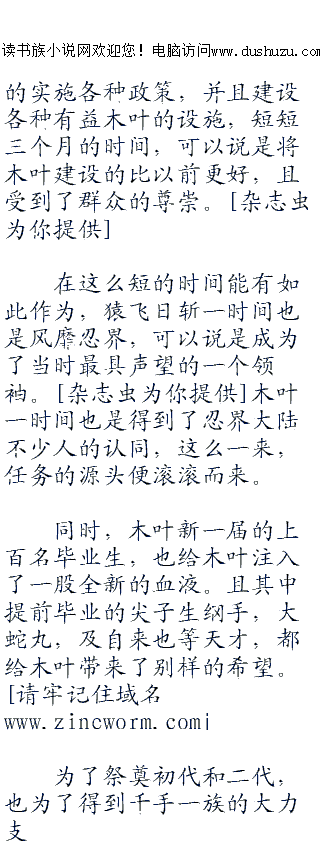 读书族小说网欢迎您！电脑访问www.dushuzu.com
的实施各种政策，并且建设
各种有益木叶的设施，短短
三个月的时间，可以说是将
木叶建设的比以前更好，且
受到了群众的尊崇。[杂志虫
为你提供]
在这么短的时间能有如
此作为，猿飞日斩一时间也
是风靡忍界，可以说是成为
了当时最具声望的一个领
袖。[杂志虫为你提供]木叶
一时间也是得到了忍界大陆
不少人的认同，这么一来，
任务的源头便滚滚而来。
同时，木叶新一届的上
百名毕业生，也给木叶注入
了一股全新的血液。且其中
提前毕业的尖子生纲手，大
蛇丸，及自来也等天才，都
给木叶带来了别样的希望。
[请牢记住域名
www.zincworm.com]
为了祭奠初代和二代，
也为了得到千手一族的大力
支